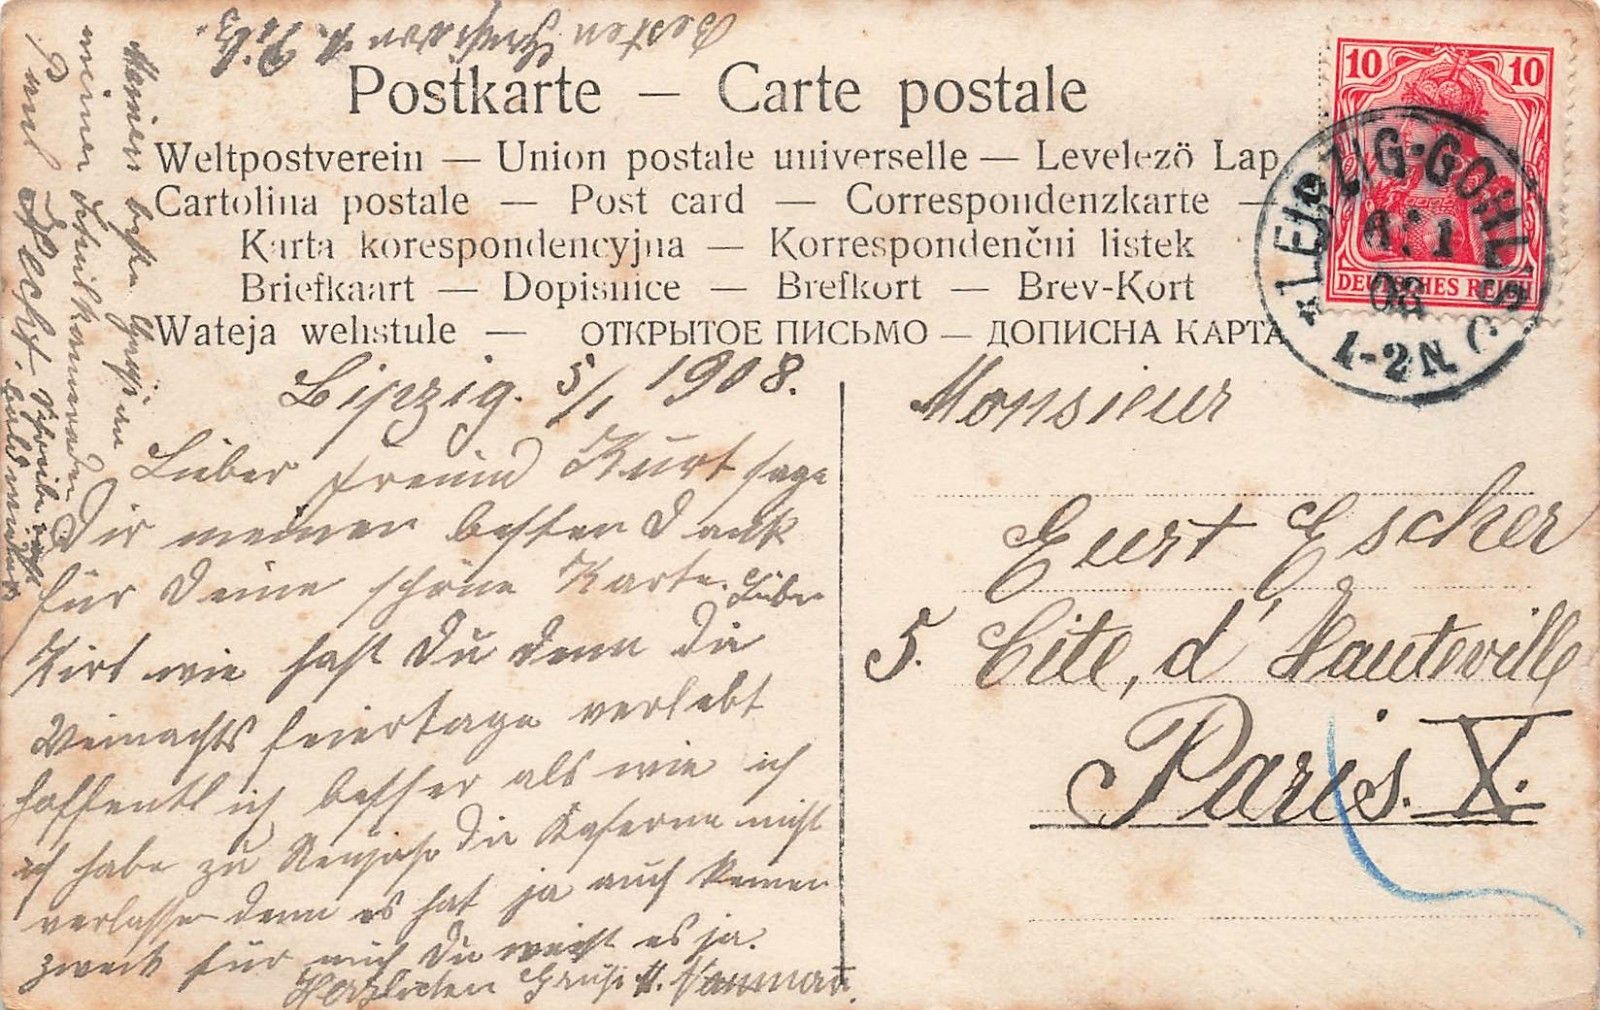 Postkarte — Carte postale
Weltpostverein — Union postale universelle — Levelező Lap
Cartolina postale — Post card — Correspondenzkarte —
Karta korespondencyjna — Korrespondenčni listek
Briefkaart — Dopisnice — Brefkort — Brev-Kort
Wateja wehstule — ОТКРЫТОЕ ПИСЬМО — ДОПИСНА КАРТА
10 10
DEUTSCHES REICH
*LEIPZIG-GOHLIS
6.1
08
1-2N
Leipzig. 5/1 1908.
Lieber Freund Kurt sage
Dir meinen besten Dank
für Deine schöne Karte. Lieber
Kurt wie hast Du denn die
Weinachts feiertage verlebt
hoffentlich besser als wie ich
ich habe zu Neujahr die Kaserne nicht
verlassen denn es hat ja auch keinen
zweck für mich Du weist es ja.
Herzlichen Gruß
Meinen besten Gruß an
meiner Schulkameraden
Paul Hecht. Schreibe recht
bald wieder
Monsieur
Kurt Escher
5. Cité, d'Hauteville
Paris. X.